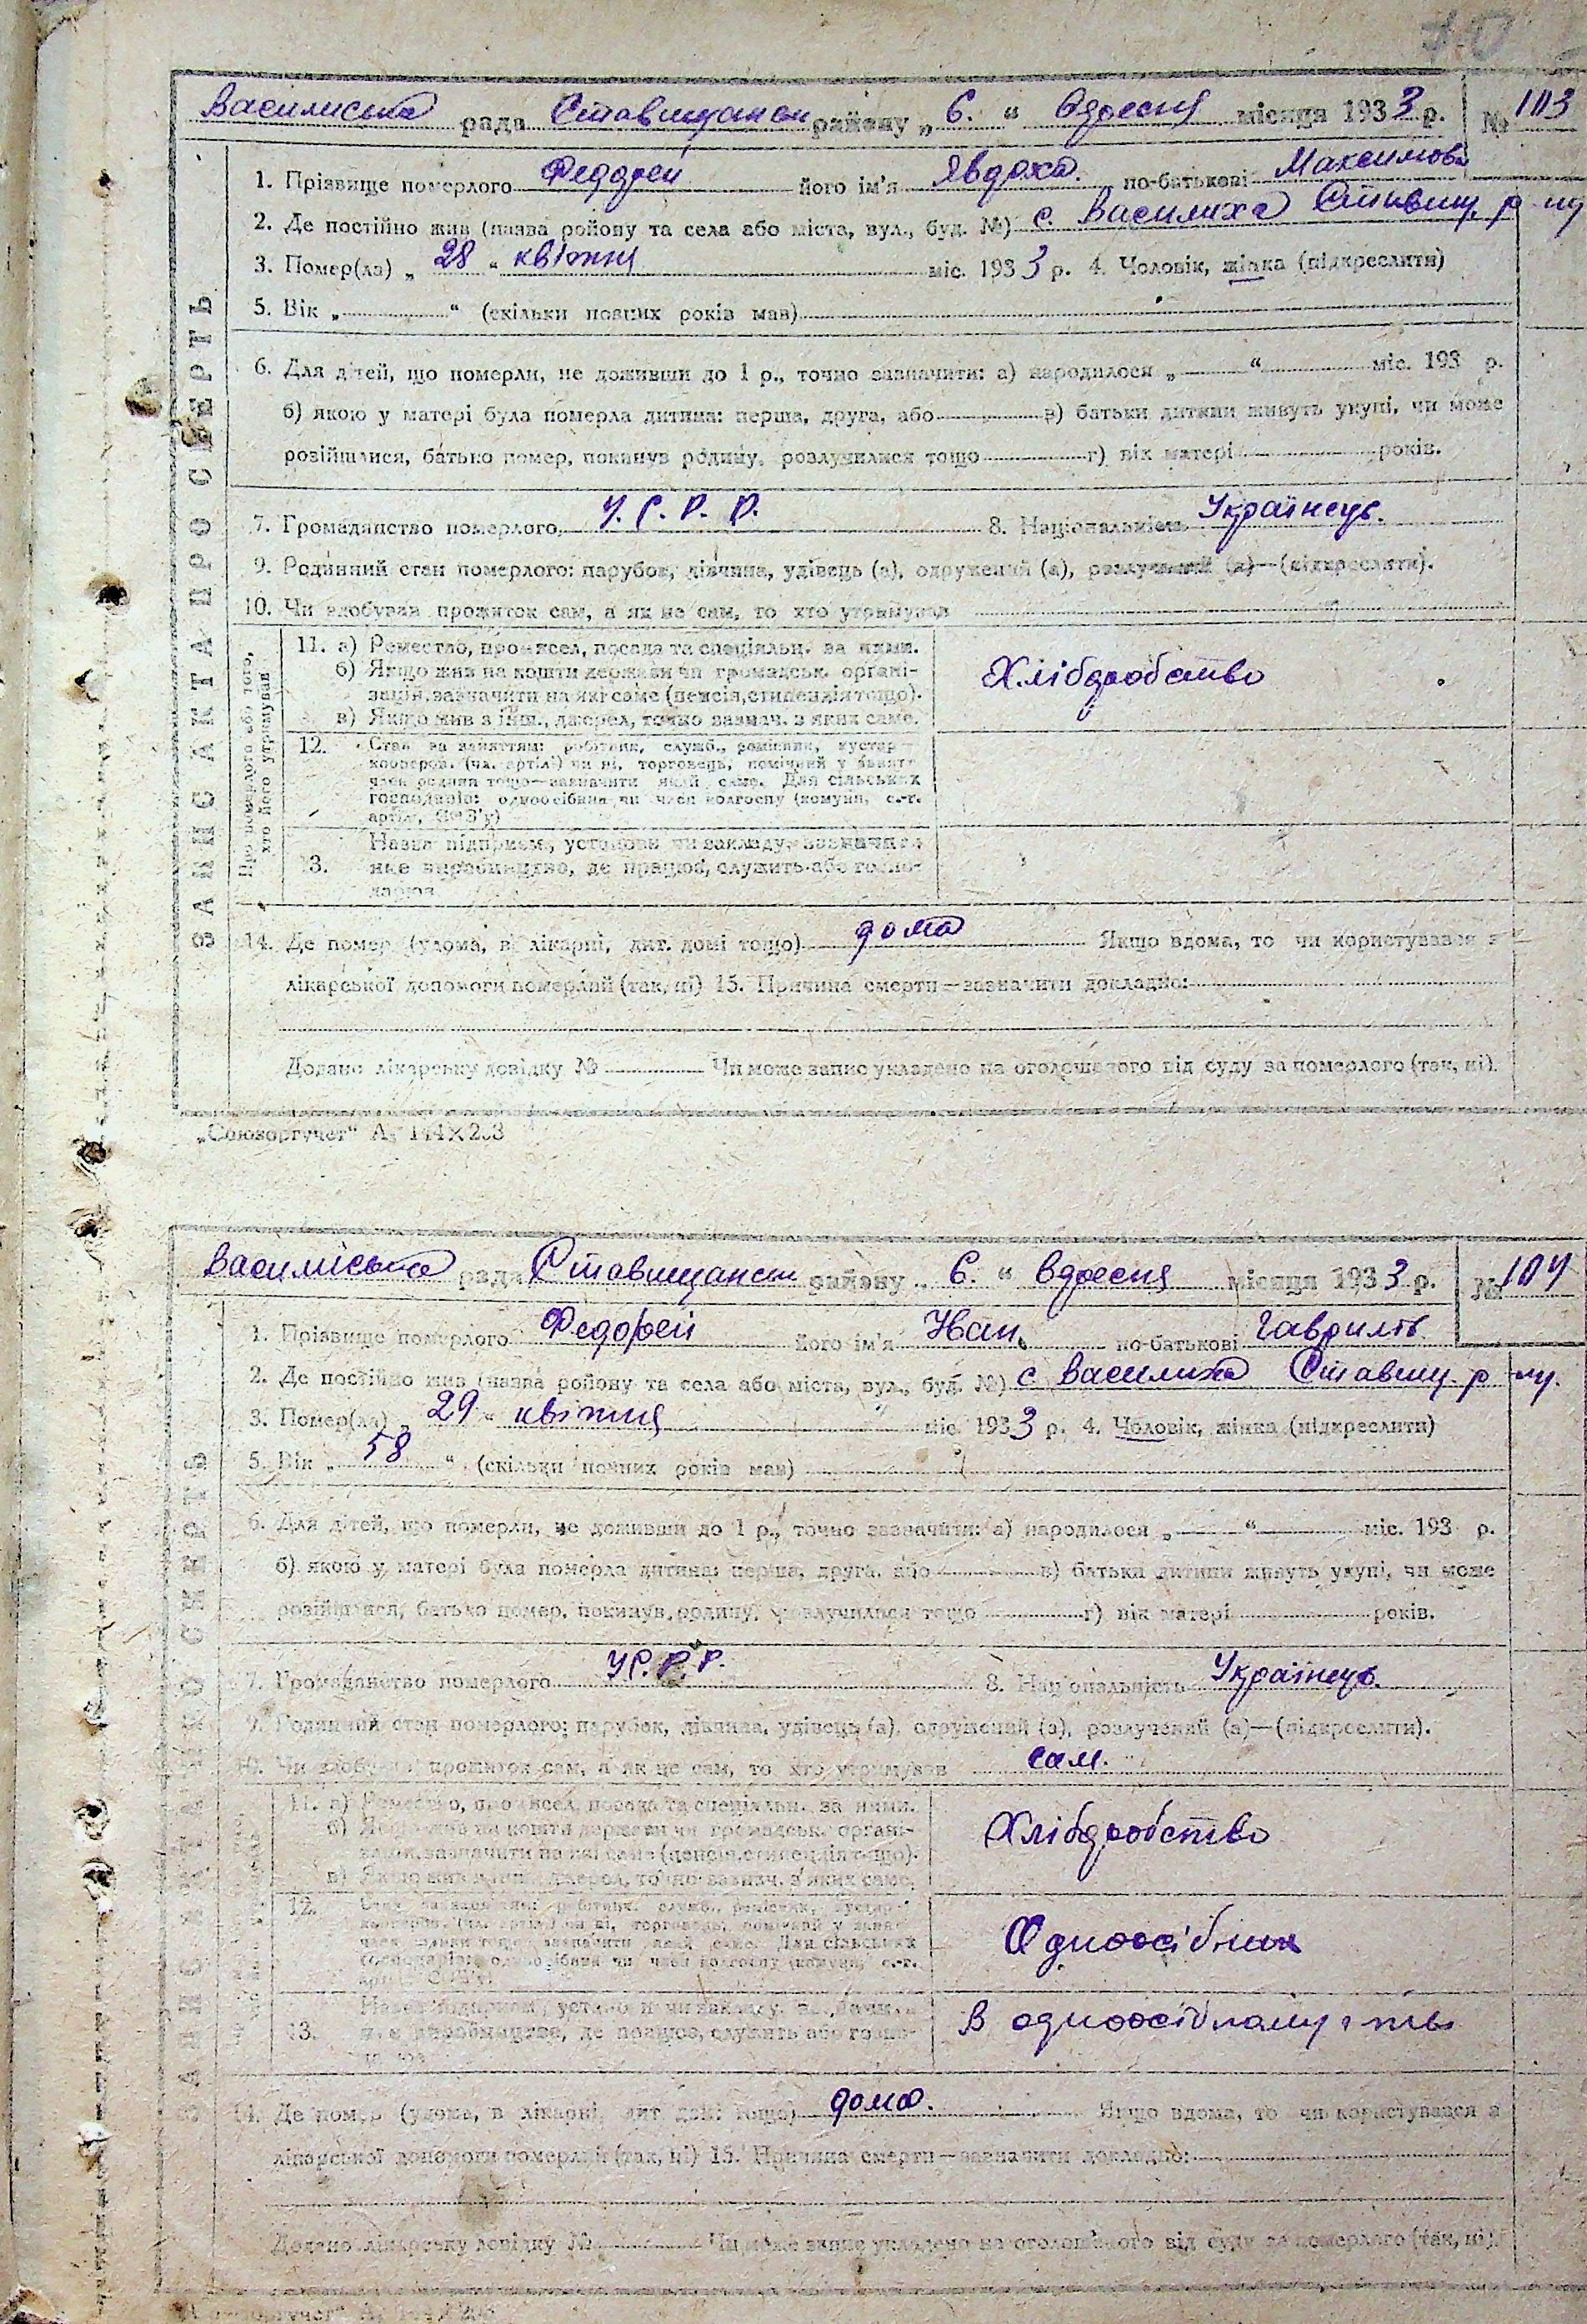 Василиська рада Ставищанськ району „ 6. “ Вдресня місяця 1933 р. № 103
ЗАПИС АКТА ПРО СМЕРТЬ
1. Прізвище померлого Феддрей його ім'я Явдоха. по-батькові Максимова
2. Де постійно жив (назва району та села або міста, вул., буд. №) с. Василиха Ставищ. р-ну
3. Помер(ла) „ 28 “ квітня міс. 1933 р. 4. Чоловік, жінка (підкреслити)
5. Вік „ “ (скільки повних років мав)
6. Для дітей, що померли, не доживши до 1 р., точно зазначити: а) народилося „ “ міс. 193 р.
б) якою у матері була померла дитина: перша, друга, або в) батьки дитини живуть укупі, чи може
розійшлися, батько помер, покинув родину, розлучилися тощо г) вік матері років.
7. Громадянство померлого У. С. Р. Р. 8. Національність Українець.
9. Родинний стан померлого: парубок, дівчина, удівець (а), одружений (а), розлучений (а)—(підкреслити).
10. Чи здобував прожиток сам, а як не сам, то хто утримував
Про померлого або того, хто його утримував
11. а) Ремество, промисел, посада та спеціяльн. за ними.
б) Якщо жив на кошти держави чи громадськ. органі-
зацій, зазначити на які саме (пенсія, стипендія тощо).
в) Якщо жив з інш., джерел, точно зазнач. з яких саме.
Хлібдробство
12. Стан за заняттям: робітник, служб., ремісник, кустар—
кооперов. (чл. артілі) чи ні, торговець, помічний у занятт
член родини тощо—зазначити який саме. Для сільських
господарів: одноосібник чи член колгоспу (комуни, с.-г.
артілі, СОЗ'у)
13. Назва підприєм., установи чи закладу,
яке виробництво, де працює, служить або госпо-
дарює
14. Де помер (удома, в лікарні, дит. домі тощо) дома Якщо вдома, то чи користувався з
лікарської допомоги померлий (так, ні) 15. Причина смерти—зазначити докладно:
Додано лікарську довідку № Чи може запис укладено на оголошеного від суду за померлого (так, ні).
„Союзоргучет“ А5 144×203
Василиська рада Ставищанськ району „ 6. “ Вдресня місяця 1933 р. № 104
1. Прізвище померлого Федорей його ім'я Іван. по-батькові Гаврилів
2. Де постійно жив (назва району та села або міста, вул., буд. №) с Василиха Ставищ. р-ну.
3. Помер(ла) „ 29 “ квітня міс. 1933 р. 4. Чоловік, жінка (підкреслити)
5. Вік „ 58 “ (скільки повних років мав)
6. Для дітей, що померли, не доживши до 1 р., точно зазначити: а) народилося „ “ міс. 193 р.
б) якою у матері була померла дитина: перша, друга, або в) батьки дитини живуть укупі, чи може
розійшлися, батько помер, покинув родину, розлучилися тощо г) вік матері років.
7. Громадянство померлого УС.Р.Р. 8. Національність Українець.
9. Родинний стан померлого: парубок, дівчина, удівець (а), одружений (а), розлучений (а)—(підкреслити).
10. Чи здобував прожиток сам, а як не сам, то хто утримував сам.
11. а) Ремество, промисел, посада та спеціяльн. за ними.
б) Якщо жив на кошти держави чи громадськ. органі-
зацій, зазначити на які саме (пенсія, стипендія тощо).
в) Якщо жив з інш., джерел, точно зазнач. з яких саме.
Хлібдробство
12.
Одноосібник
13.
яке виробництво, де працює, служить або госпо-
В одноосібному г-тві
14. Де помер (удома, в лікарні, дит домі тощо) дома. Якщо вдома, то чи користувався з
лікарської допомоги померлий (так, ні) 15. Причина смерти—зазначити докладно:
Додано лікарську довідку № Чи може запис укладено на оголошеного від суду за померлого (так, ні).